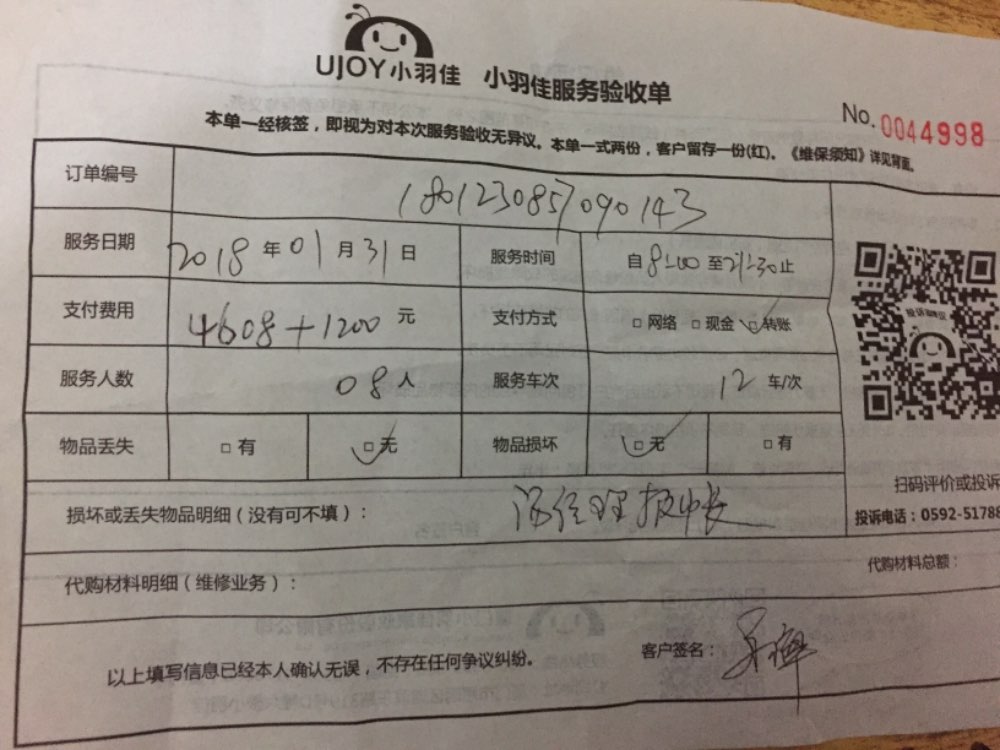 UJOY小羽佳 小羽佳服务验收单
No. 0044998
本单一经核签，即视为对本次服务验收无异议。本单一式两份，客户留存一份(红)。《维保须知》详见背面。
订单编号 1801230857090143
服务日期 2018年01月31日 服务时间 自8:00至21:30止
支付费用 4608+1200元 支付方式 □网络 □现金 □转账
服务人数 08人 服务车次 12车/次
物品丢失 □有 □无 物品损坏 □无 □有
扫码评价或投诉
损坏或丢失物品明细（没有可不填）：
投诉电话：0592-51788
代购材料明细（维修业务）： 代购材料总额：
以上填写信息已经本人确认无误，不存在任何争议纠纷。 客户签名：